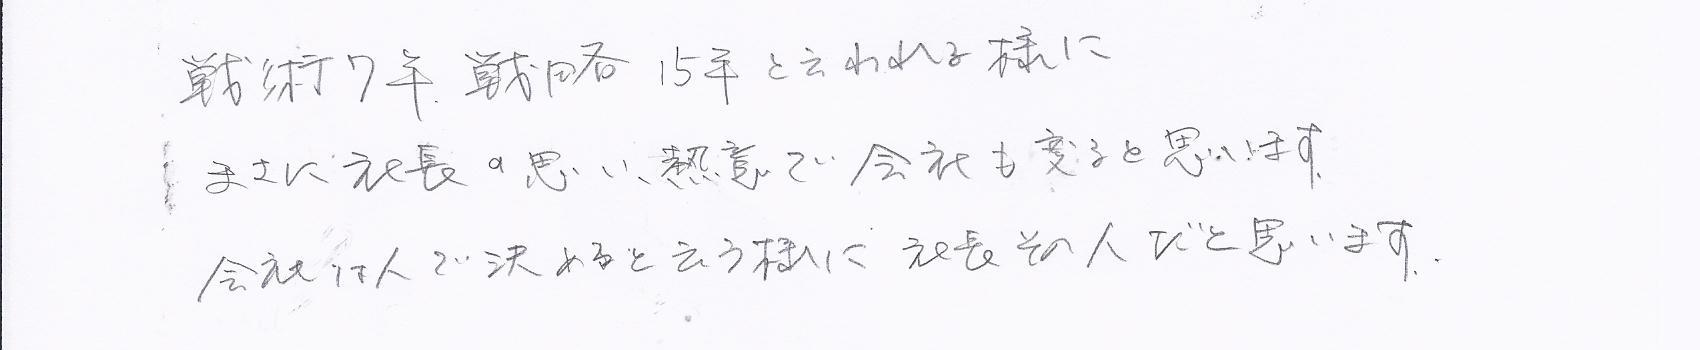 戦術7年、戦略15年と云われる様に
まさに社長の思い、熱意で会社も変ると思います。
会社は人で決めると云う様に社長その人だと思います。